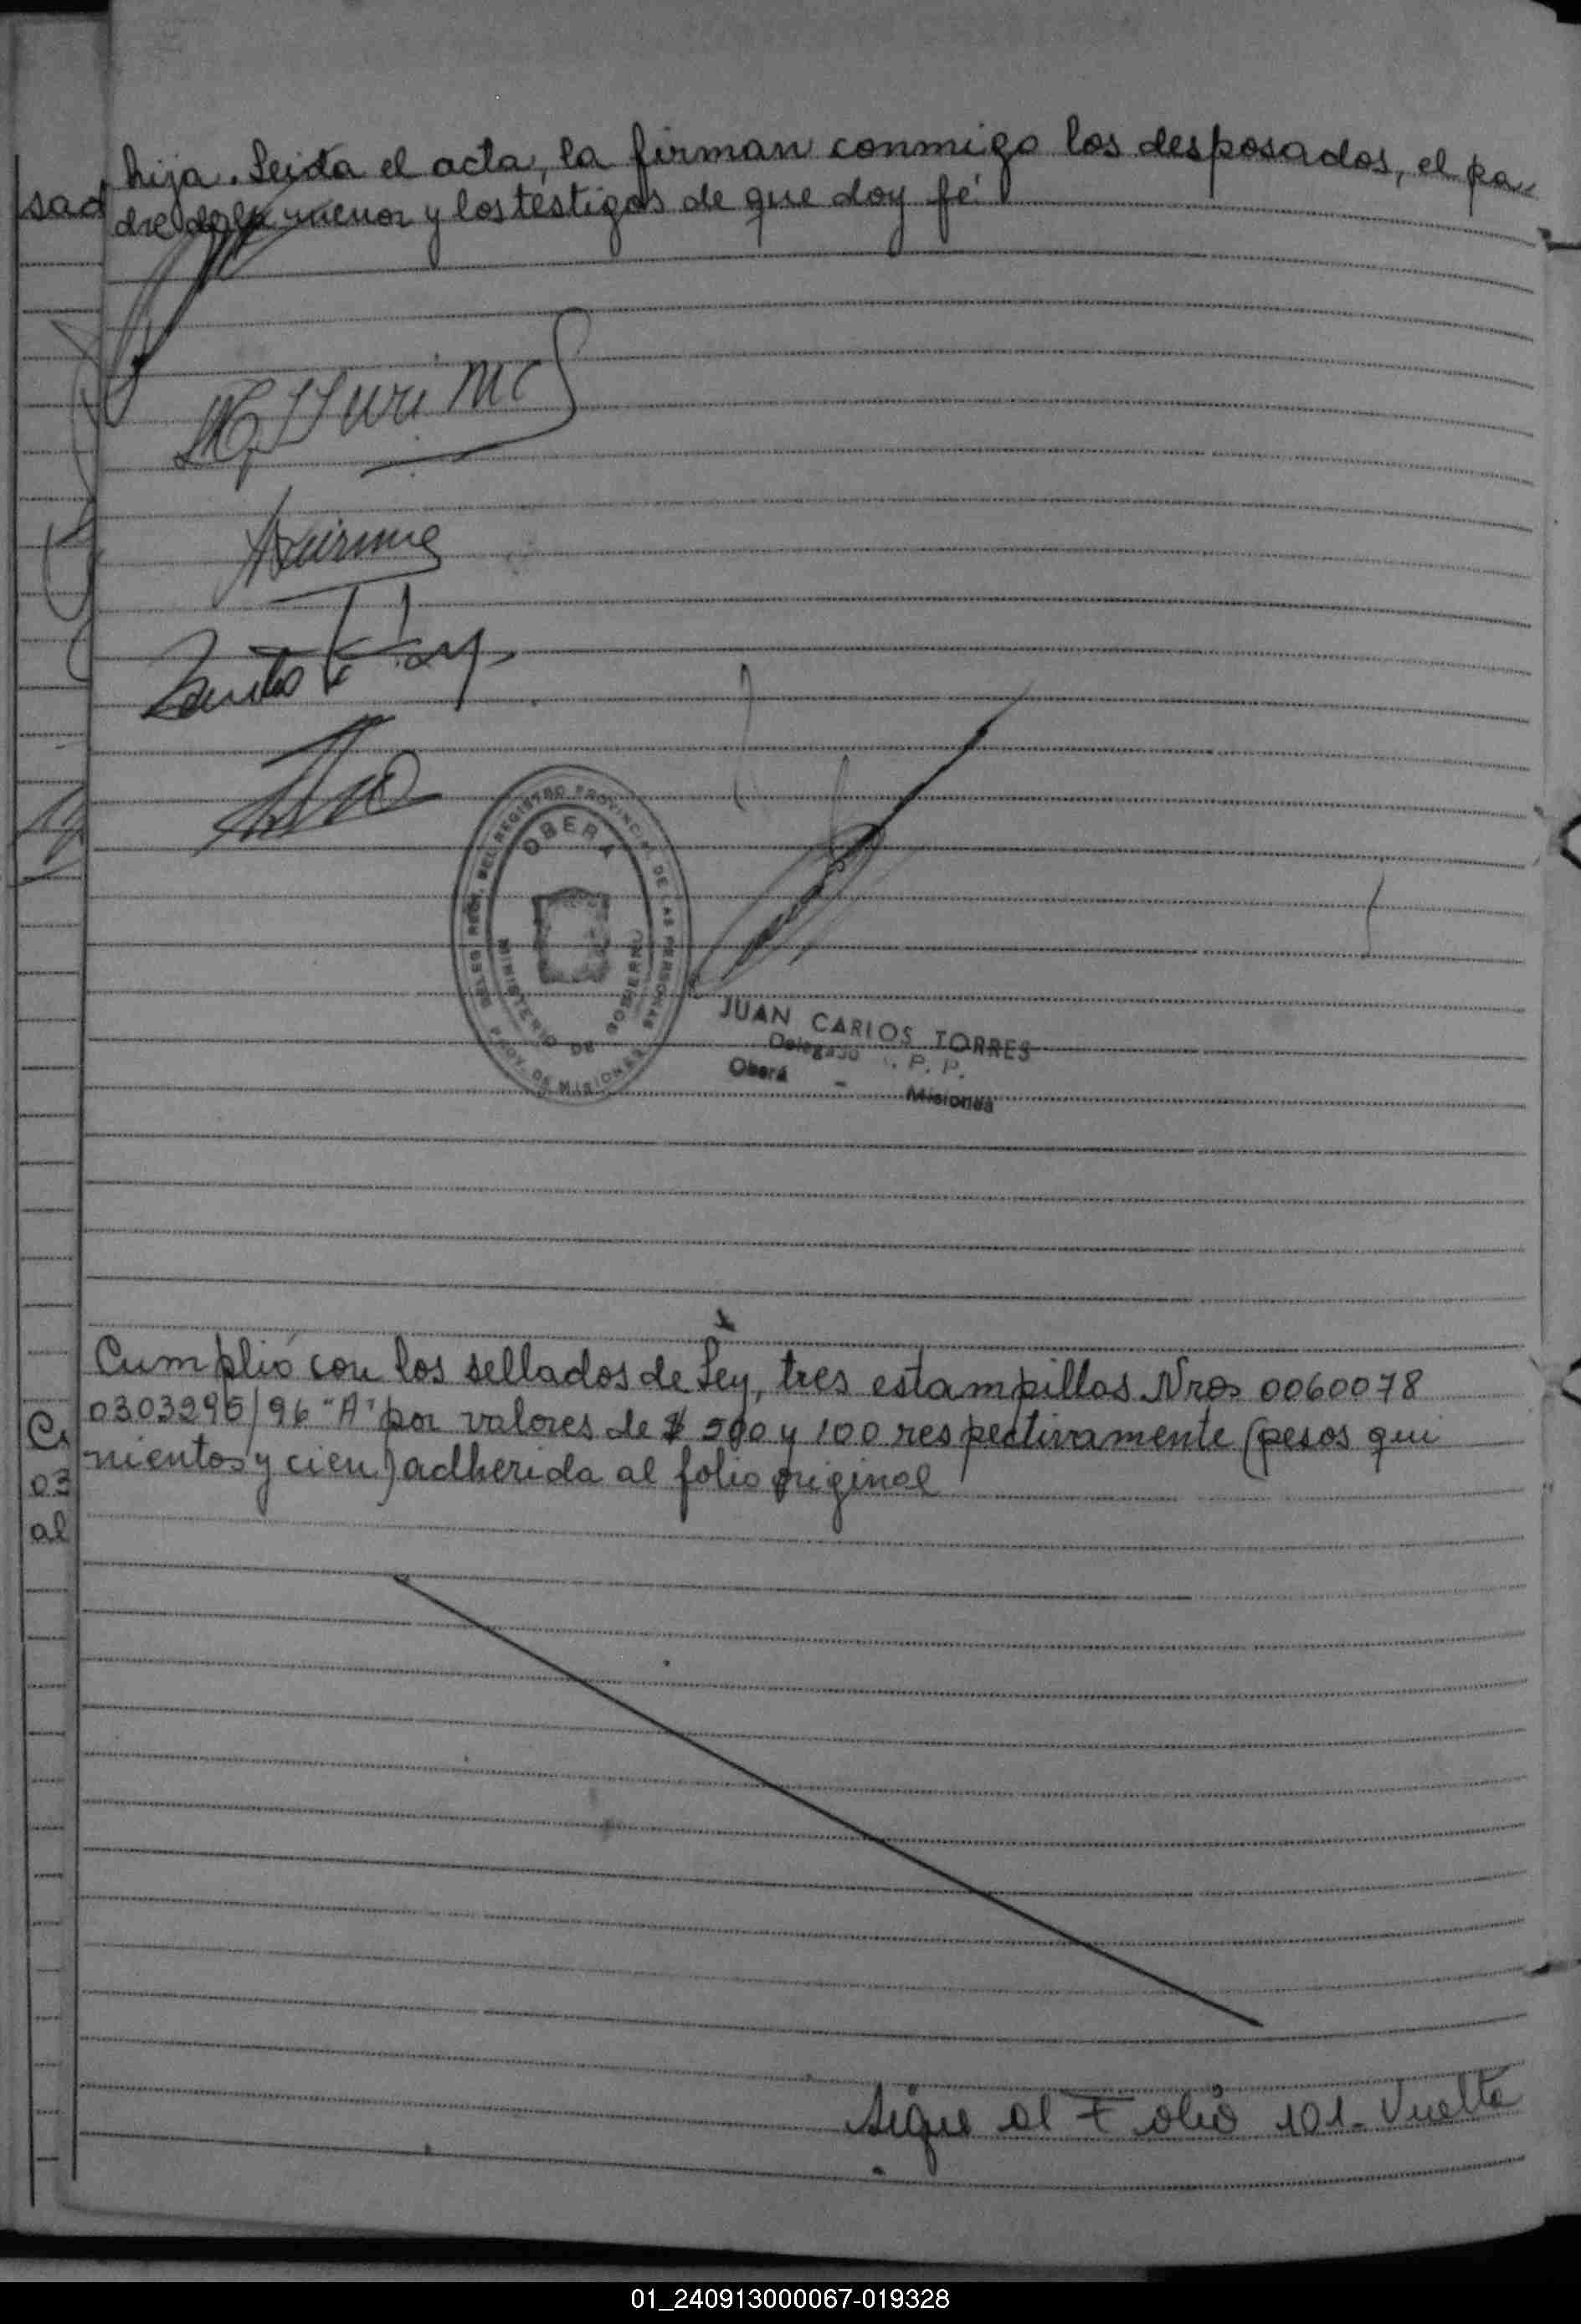 hija. Leida el acta, la firman conmigo los desposados, el pa-
sad
dre de la menor y los testigos de que doy fé.
DEL REGISTRO PROVINCIAL DE LAS PERSONAS
OBERA
MINISTERIO DE GOBIERNO
PROV. DE MISIONES
JUAN CARLOS TORRES
Delegado R. P. P.
Oberá - Misiones
Cumplió con los sellados de Ley, tres estampillas Nros 0060078
0303295/96 "A" por valores de $ 500 y 100 respectivamente (pesos qui
nientos y cien) adherida al folio original
03
al
Sigue al Folio 101- Vuelta
01_240913000067-019328